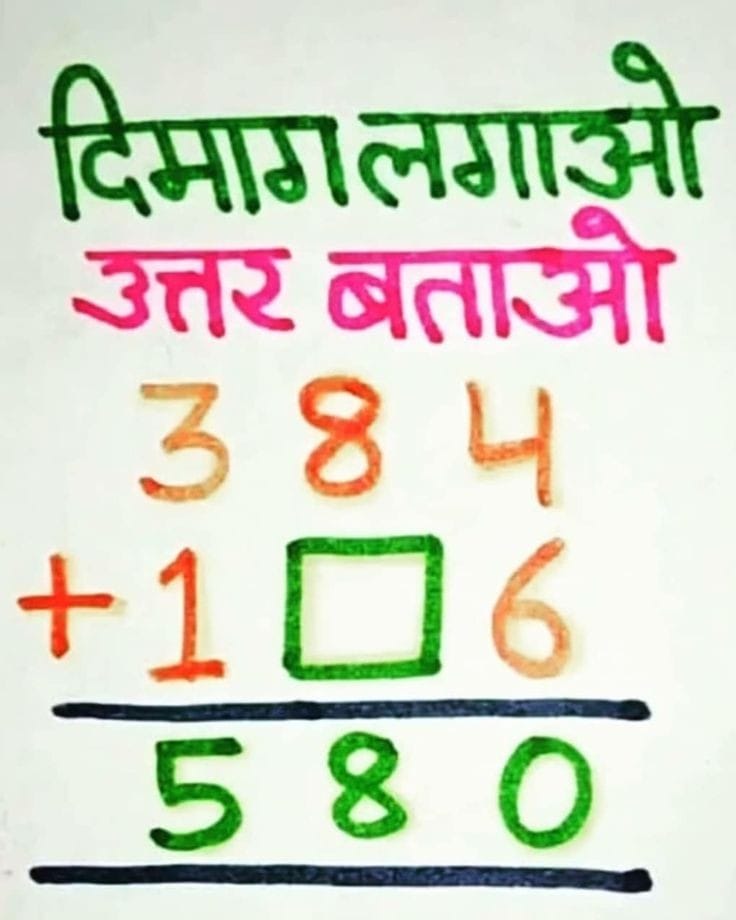 दिमाग लगाओ
उत्तर बताओ
3 8 4
+ 1 □ 6
5 8 0